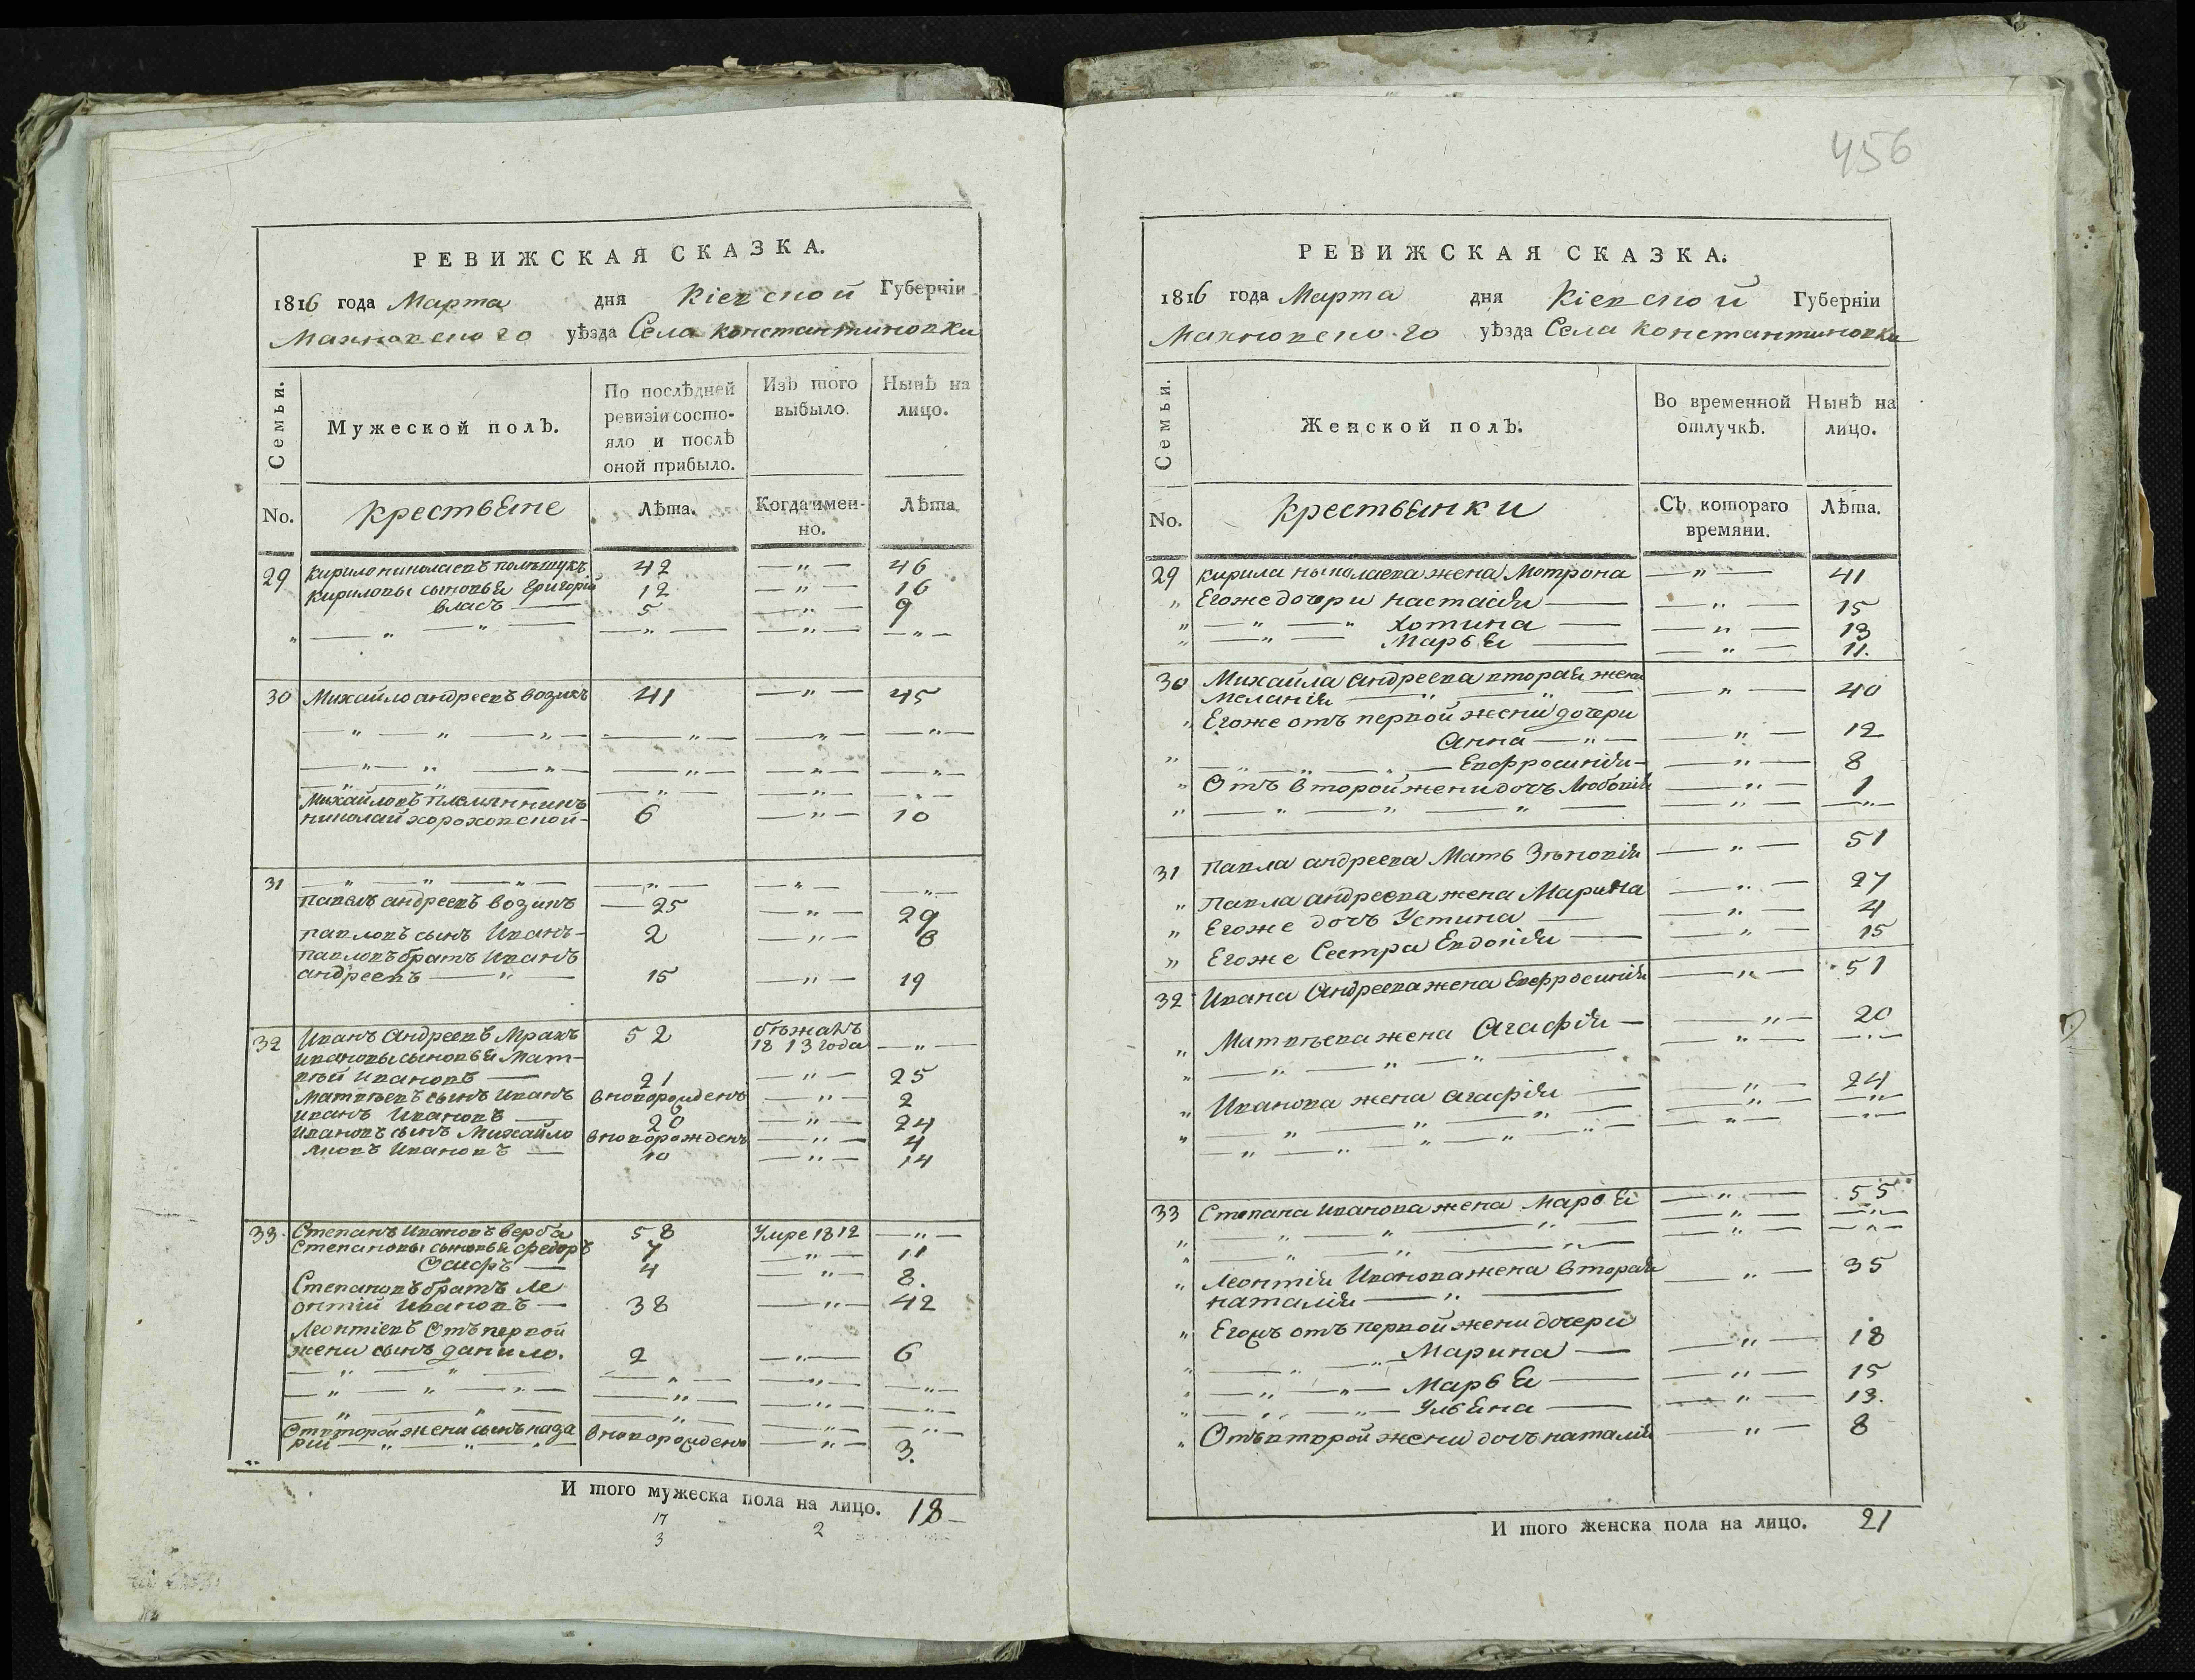 РЕВИЖСКАЯ СКАЗКА.
1816 года Марта дня Кіевской Губерніи
Махновского уѣзда Села Константиновки
Семьи.
Мужеской полЪ.
По послѣдней ревизіи состояло и послѣ оной прибыло.
ИзЪ того выбыло.
НынѢ на лицо.
No. крестьяне Лѣта. Когда имен-но. Лѣта.
29 Кирило николаевъ полѣщукъ 42 — " — 46
Кириловы сыновья Григорій 12 — " — 16
власъ — 5 — " — 9
" — " — " — — " — — " — — " —
30 Михайло андреевъ возикъ 41 — " — 45
— " — " — " — — " — — " — — " —
— " — " — " — — " — — " — — " —
— " — " — — " — — " — — " —
Михайловъ племянникъ
николай хороховской - 6 — " — 10
31 — " — " — " — — " — — " — — " —
павелъ андреевъ возикъ — 25 — " — 29
павловъ сынъ Иванъ - 2 — " — 6
павловъ братъ Иванъ
андреевъ — " — 15 — " — 19
32 Иванъ Андреевъ Мракъ 52 бѣжалъ
1813 года — " —
Ивановы сыновья Мат-
вѣй Ивановъ — 21 — " — 25
Матвѣевъ сынъ Иванъ вноворожденъ — " — 2
Иванъ Ивановъ — 20 — " — 24
Ивановъ сынъ Михайло вноворожденъ — " — 4
яковъ Ивановъ — 10 — " — 14
33 Степанъ Ивановъ верба 58 Умре 1812 — " —
Степановы сыновья федоръ 7 — " — 11
Осифъ — 4 — " — 8.
Степановъ братъ Ле
онтій Ивановъ — 38 — " — 42
Леонтіевъ Отъ первой
жени сынъ данило. 2 — " — 6
— " — " — — " — — " —
— " — " — " — — " — — " — — " —
— " — " — — " — — " — — " —
Отвторой жени сынъ наза
рій — " — " — " — вноворожденъ — " — 3.
И того мужеска пола на лицо. 18 —
17 2
3
456
РЕВИЖСКАЯ СКАЗКА.
1816 года Марта дня Кіевской Губерніи
Махновского уѣзда Села Константиновки
Семьи.
Женской полЪ.
Во временной отлучкѢ.
НынѢ на лицо.
No. крестьянки СЪ котораго времяни. Лѣта.
29 кирила николаева жена Мотрона — " — 41
" Егоже дочери настасія — — " — 15
" — " — " хотина — — " — 13
" — " — Марья — — " — 11.
30 Михайла андреева вторая жена
Меланія — " — " — — " — 40
" Егоже отъ первой жени дочери
Анна — " — — " — 12
" — " — " — " — Евфросинія - — " — 8
" Отъ второй жени дочъ Любовія — " — 1
" — " — " — " — — " — — " —
31 павла андреева Мать Зѣновія — " — 51
" павла андреева жена Марина — " — 27
" Егоже дочъ Устина — — " — 4
" Егоже Сестра Евдокія — — " — 15
32 Ивана Андреева жена Евфросинія — " — 51
" Матвѣева жена Агафія — — " — 20
" — " — " — " — — " — — " —
" Иванова жена агафія — — " — 24
— " — " — " — — " — — " —
" — " — " — " — " — — " — — " —
33 Степана Иванова жена Марья — " — 55
" " — " — " — — " — — " —
" — " — " — " — — " — — " —
" Леонтія Иванова жена вторая
наталія — " — — " — 35
" Егожъ отъ первой жени дочери
Марина — — " — 18
" — " — " — Марья — — " — 15
" — " — " — Ульяна — — " — 13.
" Отъ второй жени дочъ наталія — " — 8
И того женска пола на лицо. 21